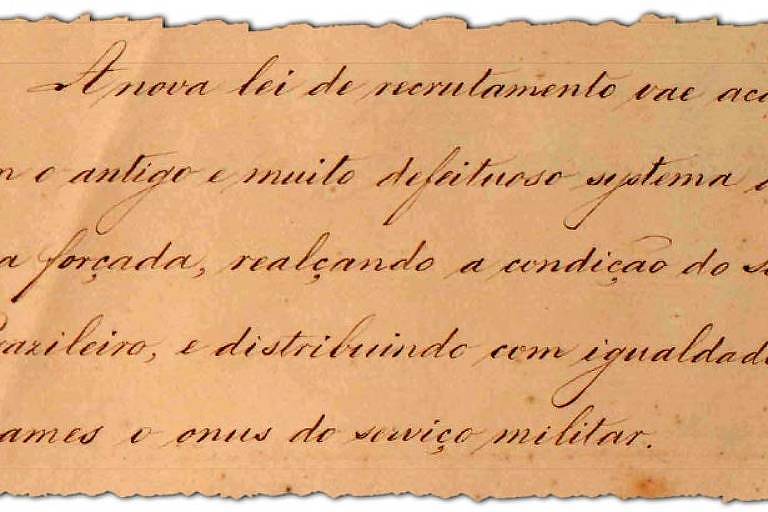 A nova lei de recrutamento vae
o antigo e muito defeituoso systema
forçada, realçando a condição do
e distribuindo com igualdade
o onus do serviço militar.